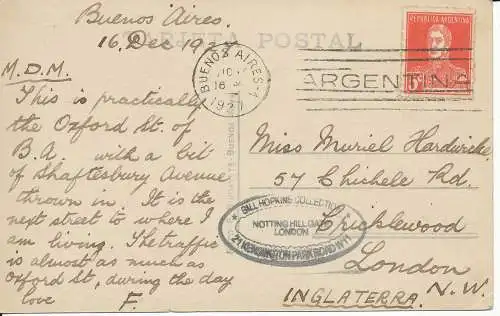 Buenos Aires.
16, Dec 1927
TARJETA POSTAL
M.D.M.
This is practically
the Oxford St. of
B.A. with a bit
of Shaftesbury Avenue
thrown in. It is the
next street to where I
am living. The traffic
is almost as much as
Oxford St, during the day
love F.
BUENOS AIRES
16
1927
REPUBLICA ARGENTINA
ARGENTINA
Miss Muriel Hardwicke
57 Chichele Rd.
Cricklewood
London
N.W.
INGLATERRA.
BILL HOPKINS COLLECTION
NOTTING HILL GATE
LONDON
21 KENSINGTON PARK ROAD W11